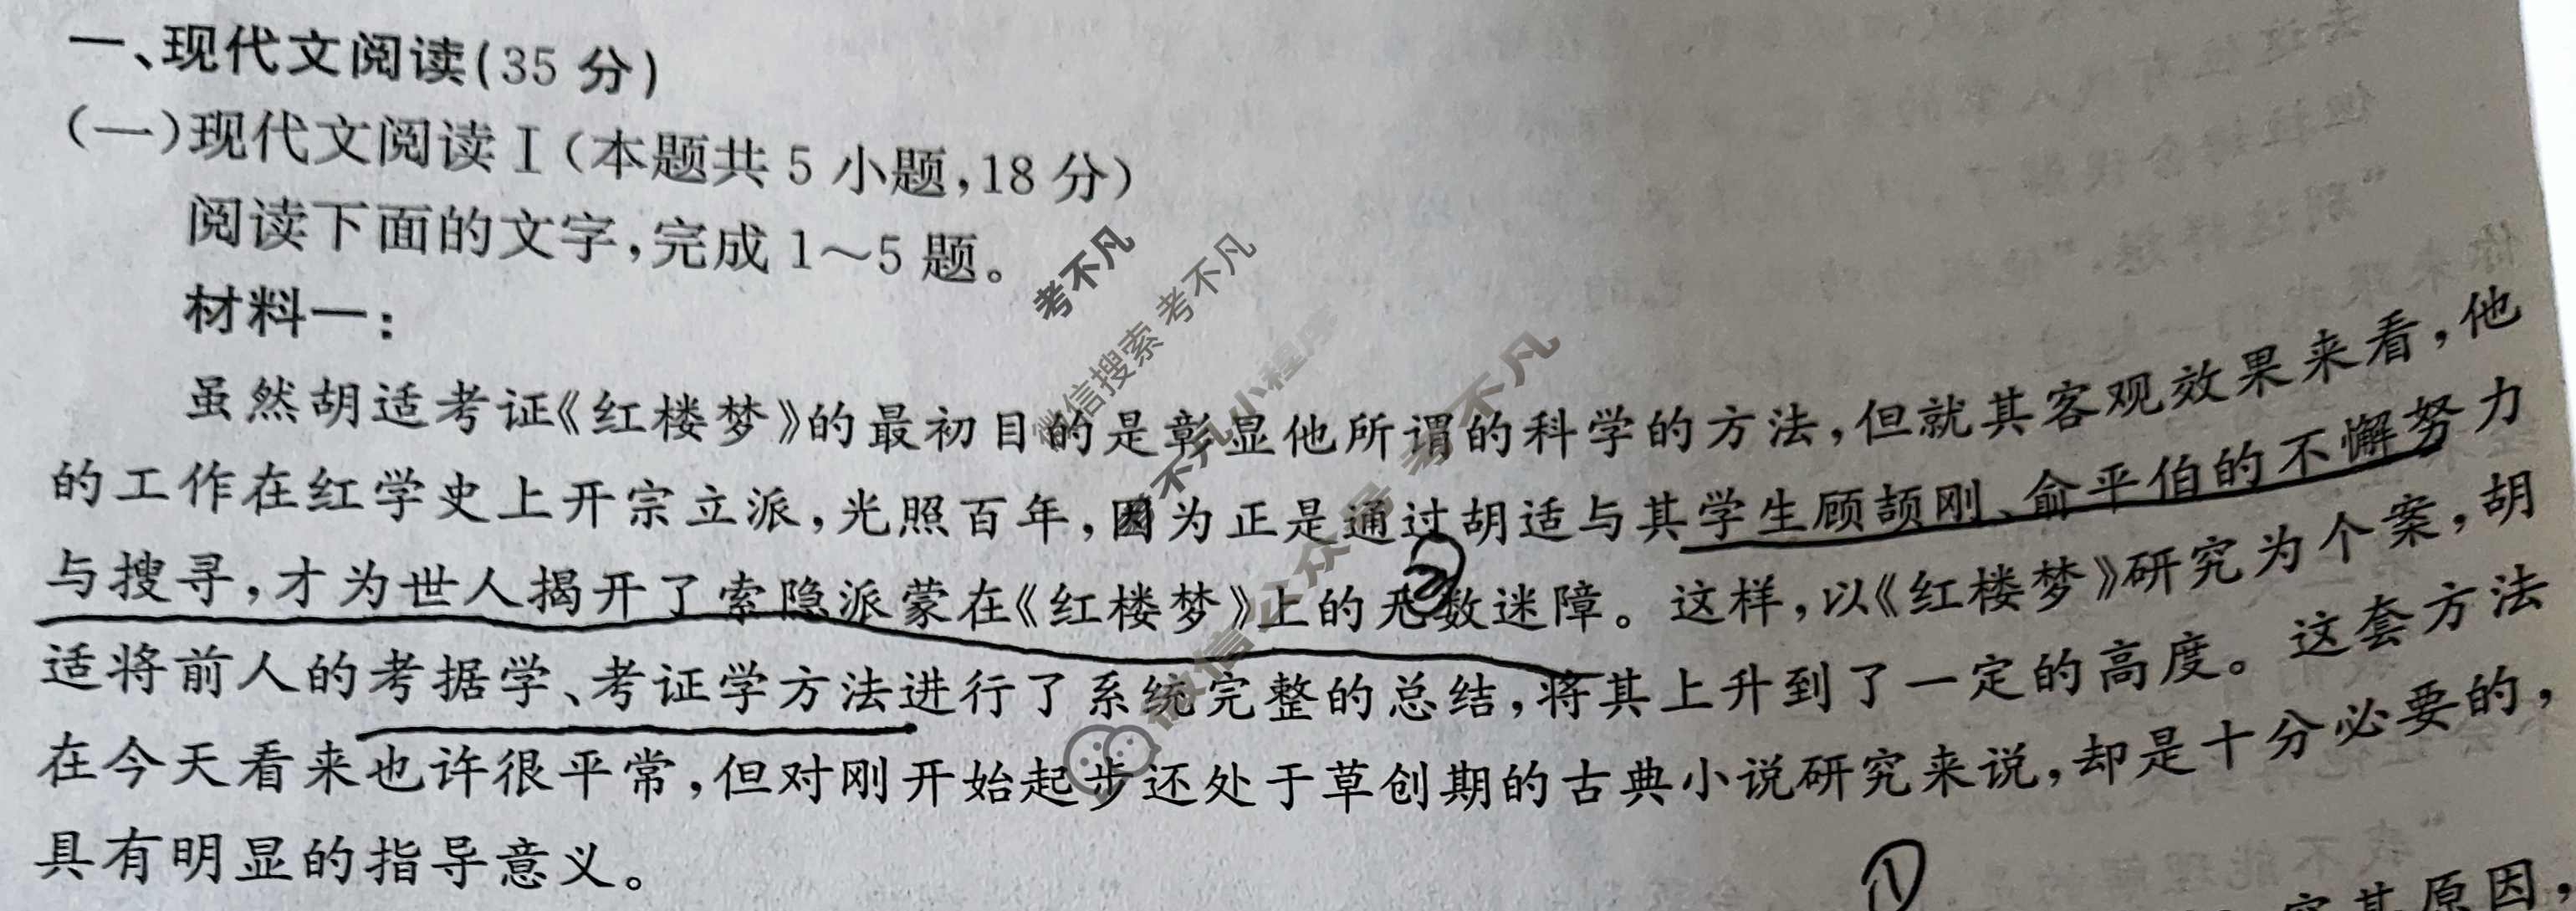 一、现代文阅读(35分)
(一)现代文阅读Ⅰ(本题共5小题,18分)
阅读下面的文字,完成1～5题。
材料一:
虽然胡适考证《红楼梦》的最初目的是彰显他所谓的科学的方法,但就其客观效果来看,他
的工作在红学史上开宗立派,光照百年,因为正是通过胡适与其学生顾颉刚、俞平伯的不懈努力
与搜寻,才为世人揭开了索隐派蒙在《红楼梦》上的无数迷障。这样,以《红楼梦》研究为个案,胡
适将前人的考据学、考证学方法进行了系统完整的总结,将其上升到了一定的高度。这套方法
在今天看来也许很平常,但对刚开始起步还处于草创期的古典小说研究来说,却是十分必要的,
具有明显的指导意义。
①
究其原因,
考不凡
微信搜索 考不凡
考不凡小程序
微信公众号 考不凡